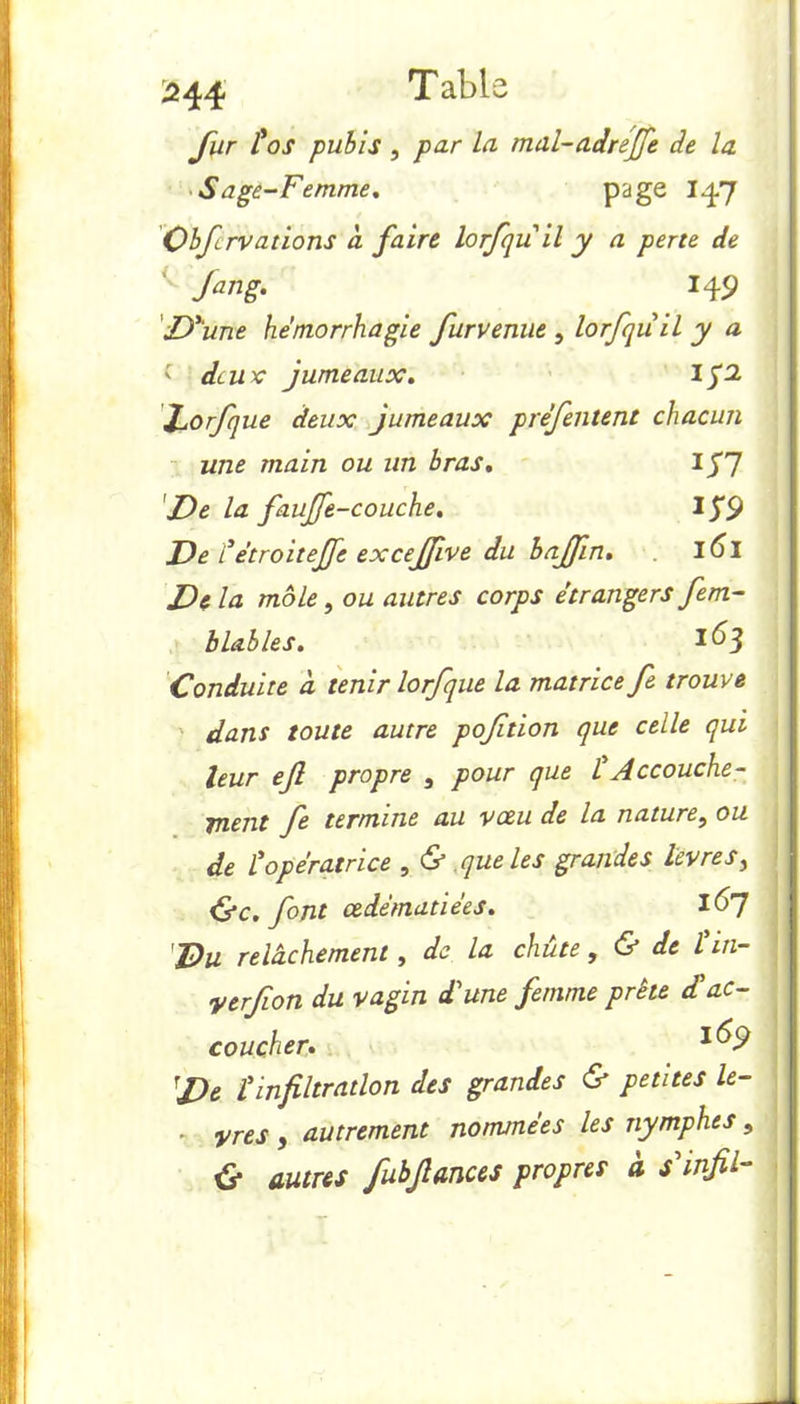 244 Table
ſur l'os pubis, par la mal-adreſſe de la
Sage-Femme. page 147
Obſervations à faire lorſqu'il y a perte de
ſang. 149
D'une hémorrhagie ſurvenue, lorſqu'il y a
deux jumeaux. 152
Lorſque deux jumeaux préſentent chacun
une main ou un bras. 157
De la fauſſe-couche. 159
De l'étroiteſſe exceſſive du baſſin. 161
De la môle, ou autres corps étrangers ſem-
blables. 163
Conduite à tenir lorſque la matrice ſe trouve
dans toute autre poſition que celle qui
leur eſt propre, pour que l'Accouche-
ment ſe termine au vœu de la nature, ou
de l'opératrice, & que les grandes lèvres,
&c. ſont œdématiées. 167
Du relâchement, de la chûte, & de l'in-
verſion du vagin d'une femme prête d'ac-
coucher. 169
De l'infiltration des grandes & petites le-
vres, autrement nommées les nymphes,
& autres ſubſtances propres à s'infil-